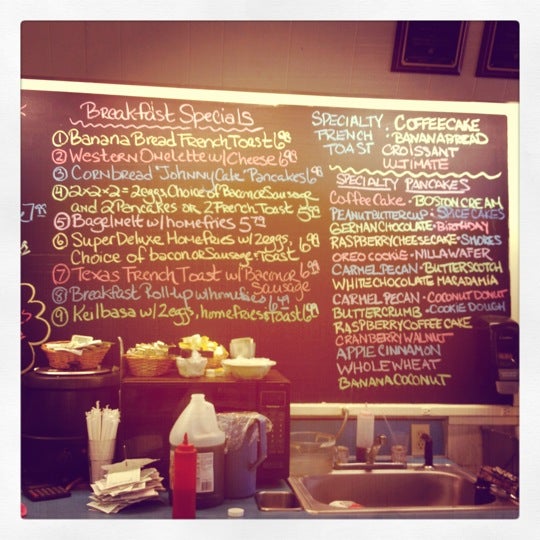 Breakfast Specials
① Banana Bread French Toast 6.98
② Western Omelette w/ Cheese 6.98
③ Cornbread "Johnny Cake" Pancakes 6.98
④ 2x2x2 = 2eggs, Choice of Bacon or Sausage
and 2 Pancakes or 2 French Toast
⑤ Bagel Melt w/ homefries
⑥ Super Deluxe Homefries w/ 2eggs,
Choice of bacon or Sausage + Toast
⑦ Texas French Toast w/ Bacon or
Sausage
⑧ Breakfast Roll-up w/ homefries
⑨ Keilbasa w/ 2eggs, homefries + Toast
SPECIALTY FRENCH TOAST : COFFEECAKE
BANANA BREAD
CROISSANT
ULTIMATE
SPECIALTY PANCAKES
Coffee Cake • BOSTON CREAM
PEANUTBUTTERCUP • SPICE CAKES
GERMAN CHOCOLATE • BIRTHDAY
RASPBERRY CHEESECAKE • SMORES
OREO COOKIE • NILLA WAFER
CARMEL PECAN • BUTTERSCOTCH
WHITE CHOCOLATE MACADAMIA
CARMEL PECAN • COCONUT DONUT
BUTTERCRUMB • COOKIE DOUGH
RASPBERRY COFFEE CAKE
CRANBERRY WALNUT
APPLE CINNAMON
WHOLE WHEAT
BANANA COCONUT